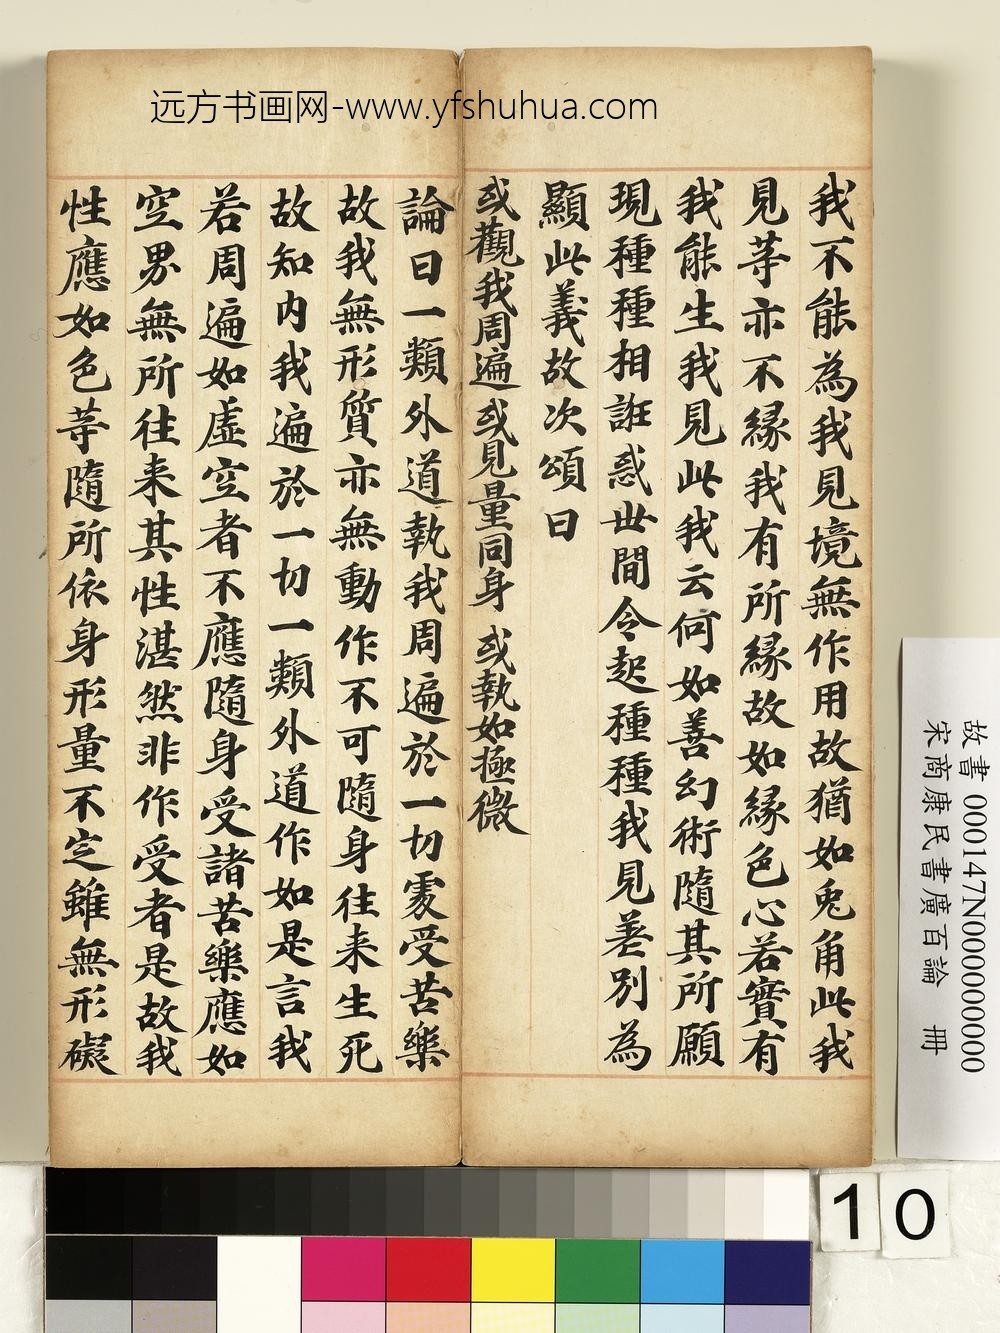 远方书画网-www.yfshuhua.com
我不能為我見境無作用故猶如兎角此我
見等亦不緣我有所緣故如緣色心若實有
我能生我見此我云何如善幻術隨其所願
現種種相誑惑世間令起種種我見差別為
顯此義故次頌曰
或觀我周遍 或見量同身 或執如極微
論曰一類外道執我周遍於一切處受苦樂
故我無形質亦無動作不可隨身往来生死
故知内我遍於一切一類外道作如是言我
若周遍如虛空者不應隨身受諸苦樂應如
空界無所往来其性湛然非作受者是故我
性應如色等隨所依身形量不定雖無形礙
故書 000147N000000000
宋商康民書廣百論 冊
10